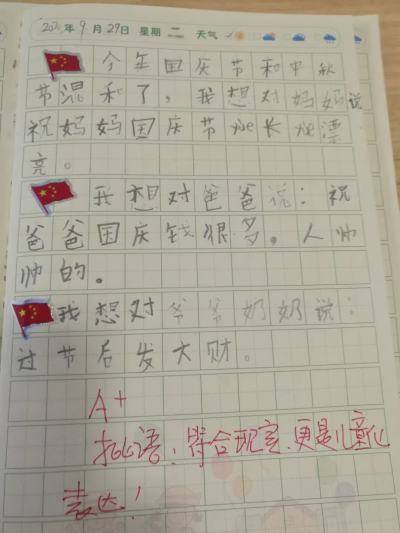 2020年9月29日 星期二 天气
今年国庆节和中秋
节混和了，我想对妈妈说
祝妈妈国庆节快长快漂
亮。
我想对爸爸说：祝
爸爸国庆钱很多。人帅
帅的。
我想对爷爷奶奶说：
过节后发大财。
A+
批语：符合现实，更是儿童化
表达！